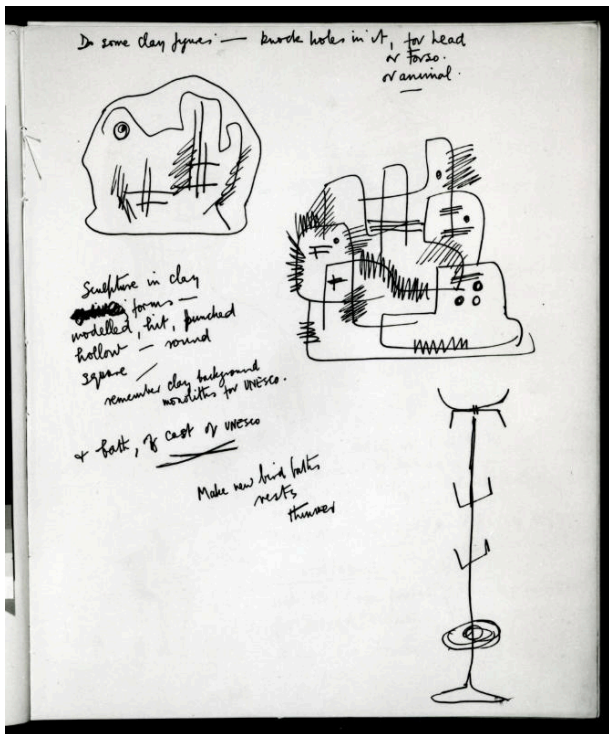 Do some clay figures — knock holes in it, for head
or Torso.
or animal.
Sculpture in clay
forms —
modelled, hit, punched
hollow — round
square /
remember clay background
monoliths for UNESCO.
+ bath, of cast of UNESCO
Make new bird baths
rests
thinner